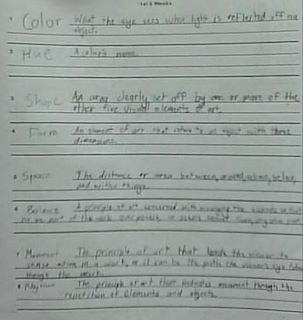 1 Color What the eye sees when light is reflected off an
object.
2 Hue A color's name.
3 Shape An area clearly set off by one or more of the
other five visual elements of art.
4 Form An element of art that refers to an object with three
dimensions.
5 Space The distance or area between, around, above, below,
and within things.
6 Balance A principle of art concerned with
no one part of the work
7 Movement The principle of art that leads the viewer to
sense action in a work, or it can be the path the viewer's eye
through the work.
8 The principle of art that indicates movement through the
repetition of elements and objects.